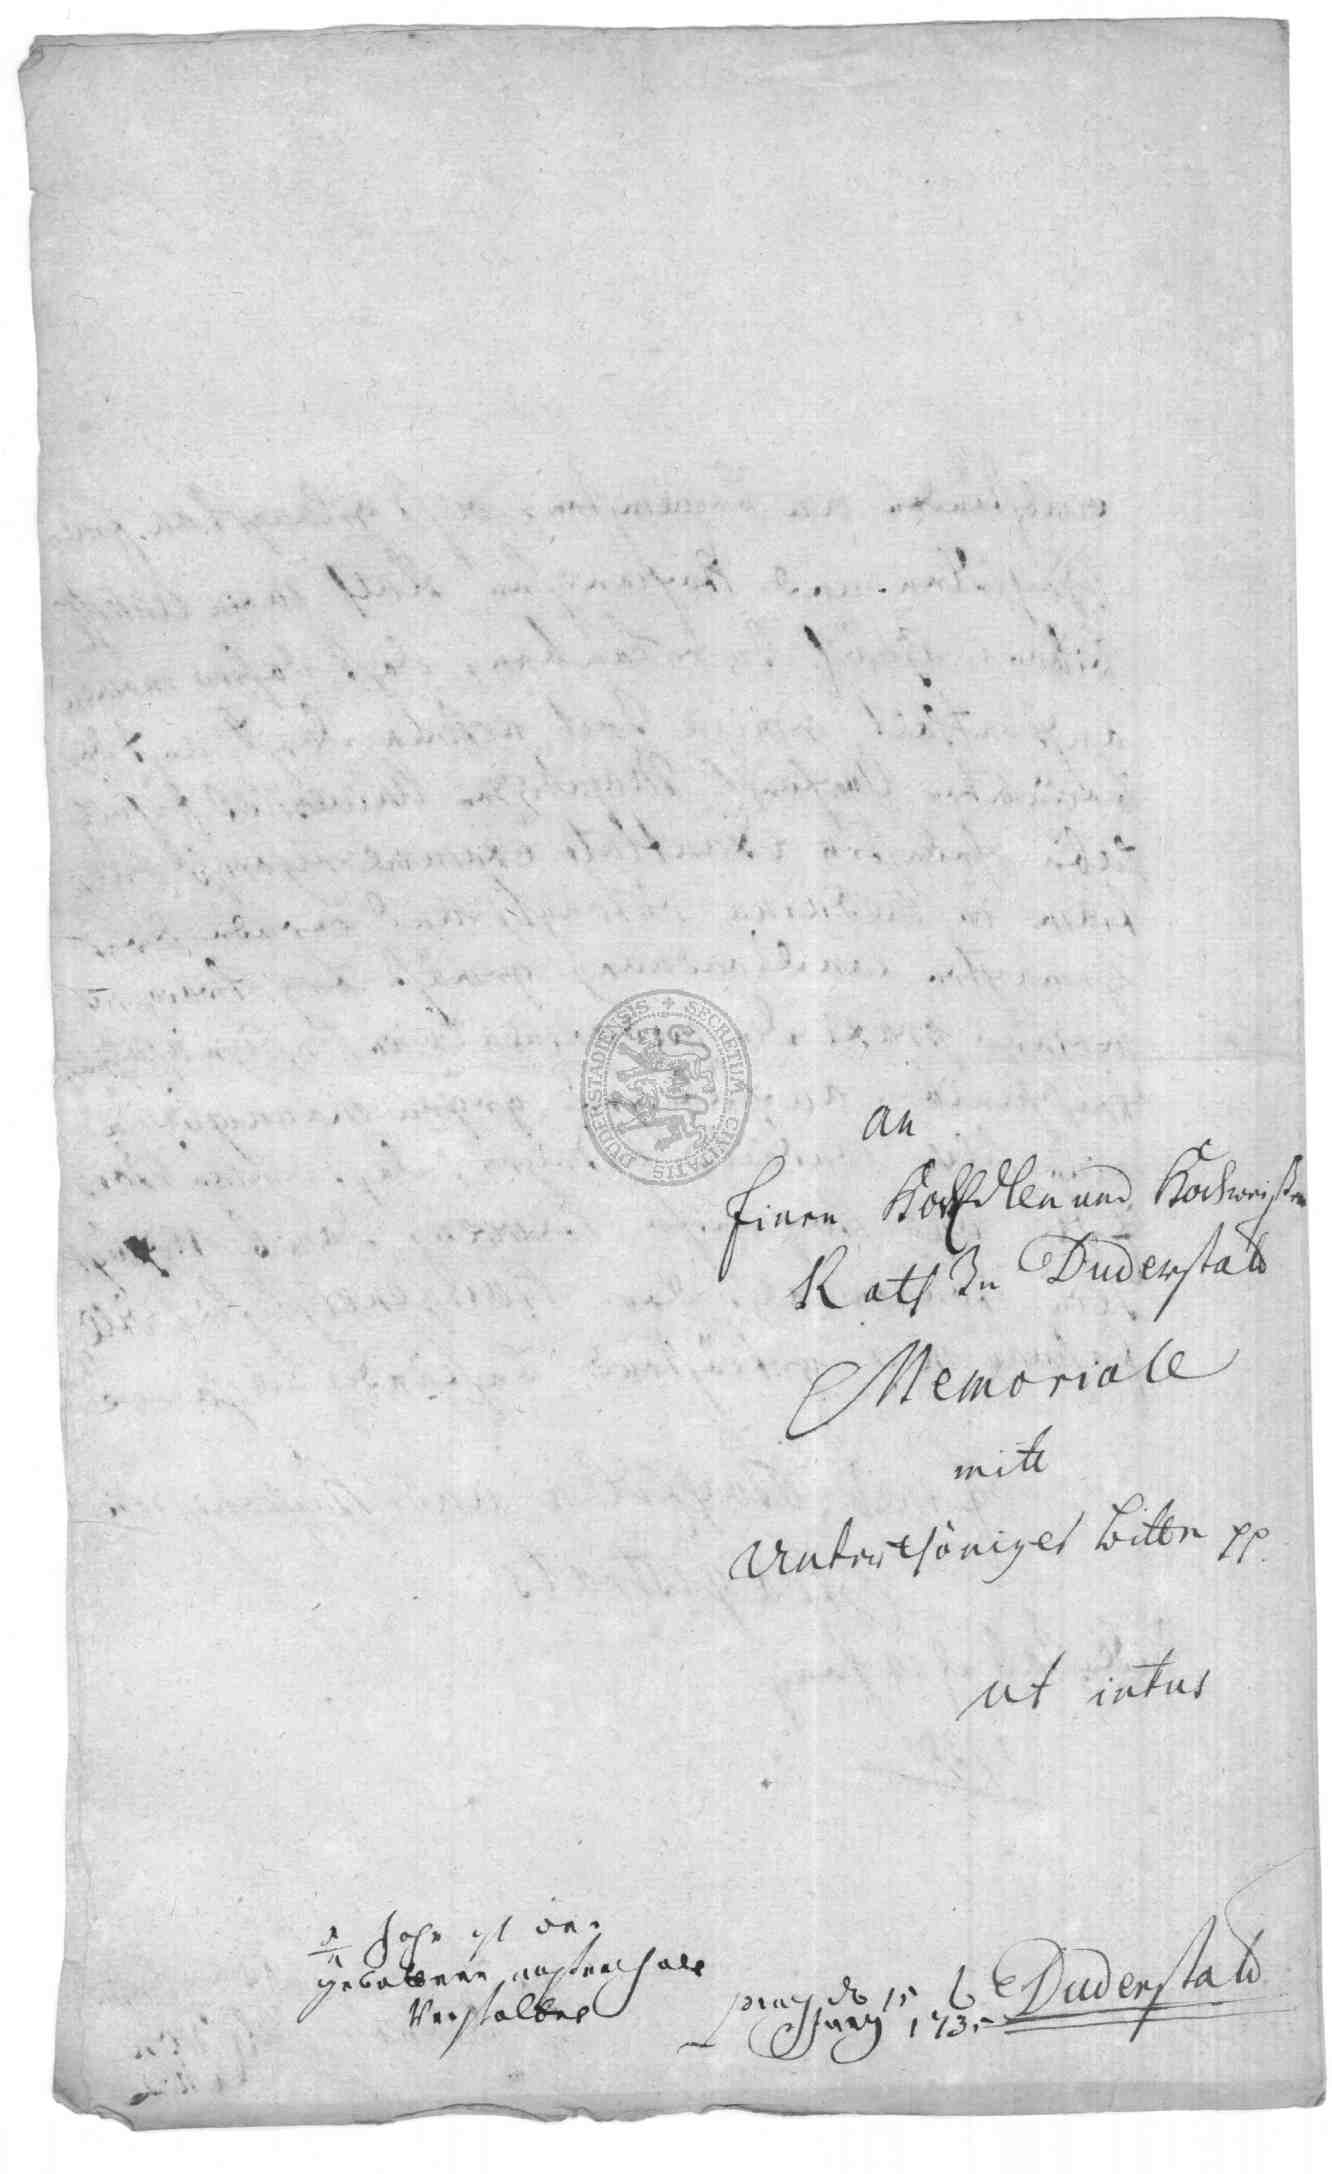 SECRETUM CIVITATIS DUDERSTADIENSIS
an
Einen HochEdlen und Hochweisen
Rath Zu Duderstadt
Memoriale
mitt
Unterthöniges bitten pp.
ut intus
ist
gebottener nachtrag als
præs d 15
Juny 1735
Duderstadt